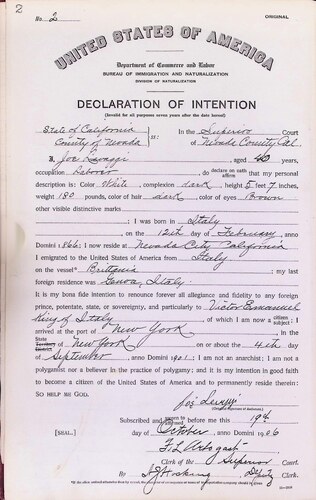 2
No. 2
ORIGINAL
UNITED STATES OF AMERICA
Department of Commerce and Labor
BUREAU OF IMMIGRATION AND NATURALIZATION
DIVISION OF NATURALIZATION
DECLARATION OF INTENTION
(Invalid for all purposes seven years after the date hereof)
State of California
County of Nevada
ss:
In the Superior Court
of Nevada County Cal
I, Joe, aged 40 years,
occupation Laborer, do declare on oath affirm that my personal
description is: Color White, complexion dark, height 5 feet 7 inches,
weight 180 pounds, color of hair dark, color of eyes Brown
other visible distinctive marks
I was born in Italy
on the 12th day of February, anno
Domini 1866; I now reside at Nevada City California
I emigrated to the United States of America from Italy
on the vessel Brittania; my last
foreign residence was Genoa, Italy.
It is my bona fide intention to renounce forever all allegiance and fidelity to any foreign
prince, potentate, state, or sovereignty, and particularly to Victor Emanuel
King of Italy, of which I am now a citizen subject; I
arrived at the port of New York, in the
State of New York on or about the 4th day
of September, anno Domini 1901; I am not an anarchist; I am not a
polygamist nor a believer in the practice of polygamy; and it is my intention in good faith
to become a citizen of the United States of America and to permanently reside therein:
SO HELP ME GOD.
(Original signature of declarant.)
Subscribed and sworn to before me this 19th
[SEAL.]
day of October, anno Domini 1906
Clerk of the Superior Court.
By